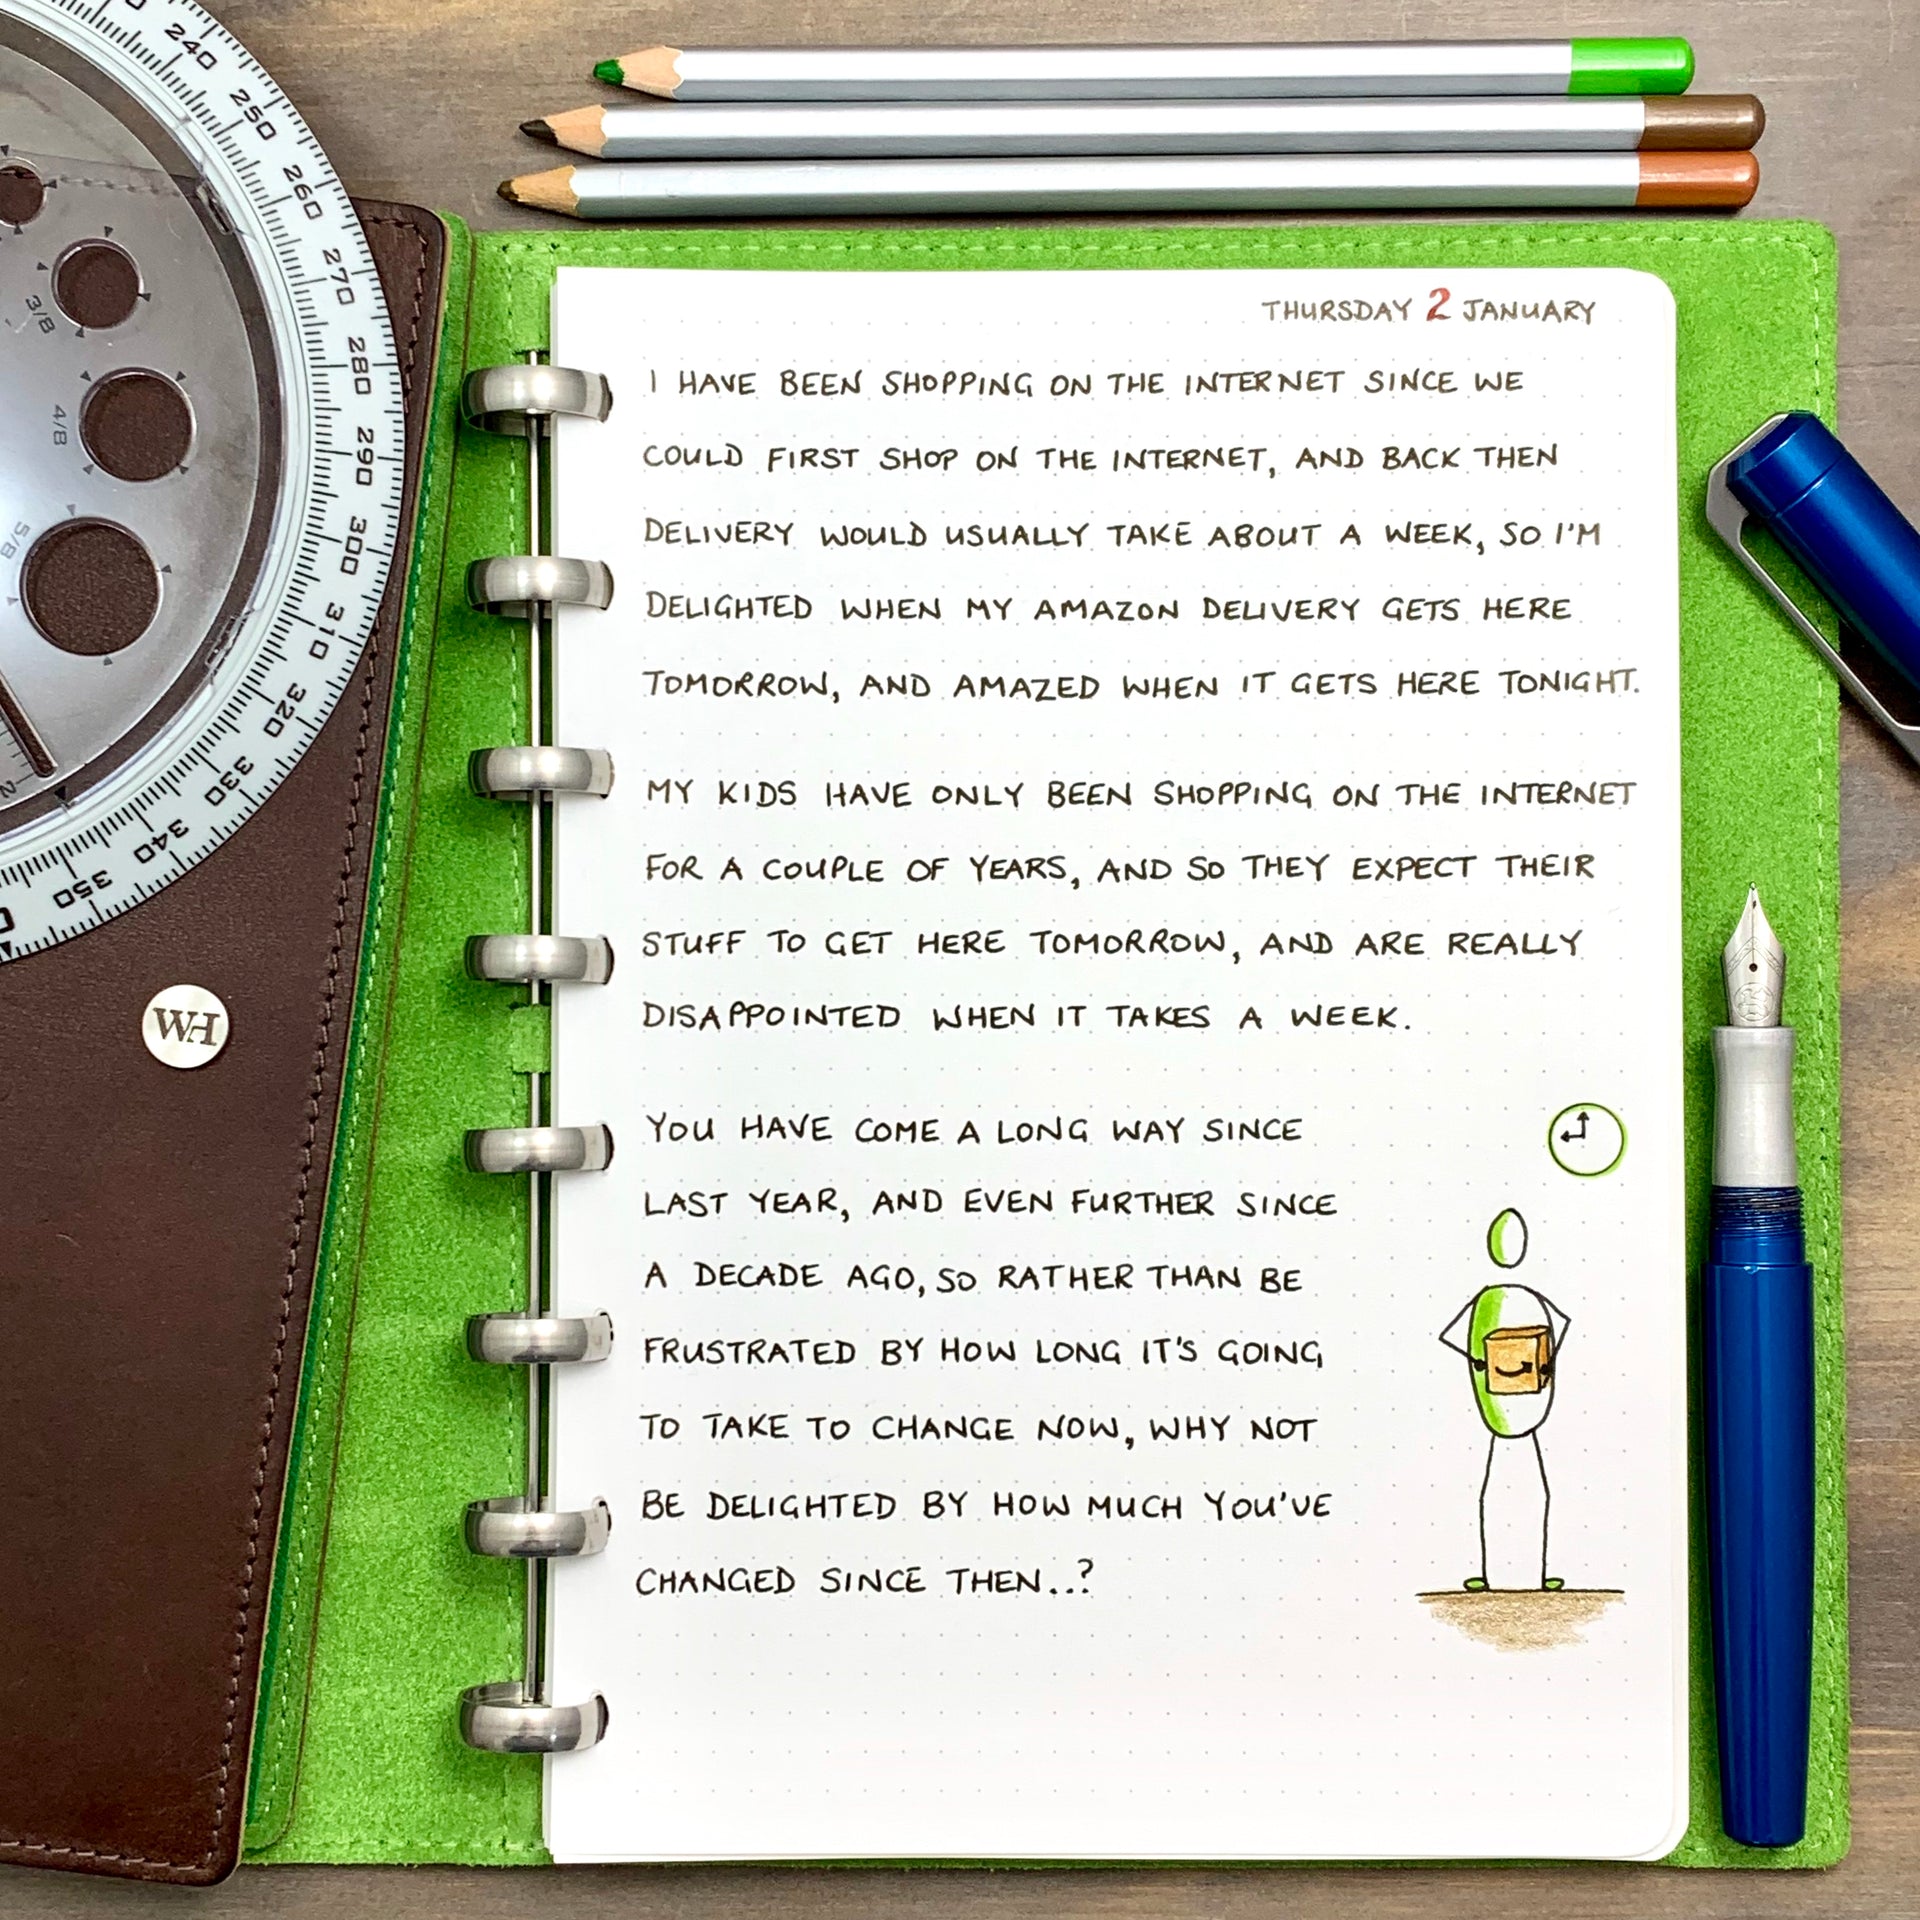 240
250
260
270
280
290
300
310
320
330
340
350
0
3/8
4/8
5/8
2
WH
THURSDAY 2 JANUARY
I HAVE BEEN SHOPPING ON THE INTERNET SINCE WE
COULD FIRST SHOP ON THE INTERNET, AND BACK THEN
DELIVERY WOULD USUALLY TAKE ABOUT A WEEK, SO I'M
DELIGHTED WHEN MY AMAZON DELIVERY GETS HERE
TOMORROW, AND AMAZED WHEN IT GETS HERE TONIGHT.
MY KIDS HAVE ONLY BEEN SHOPPING ON THE INTERNET
FOR A COUPLE OF YEARS, AND SO THEY EXPECT THEIR
STUFF TO GET HERE TOMORROW, AND ARE REALLY
DISAPPOINTED WHEN IT TAKES A WEEK.
YOU HAVE COME A LONG WAY SINCE
LAST YEAR, AND EVEN FURTHER SINCE
A DECADE AGO, SO RATHER THAN BE
FRUSTRATED BY HOW LONG IT'S GOING
TO TAKE TO CHANGE NOW, WHY NOT
BE DELIGHTED BY HOW MUCH YOU'VE
CHANGED SINCE THEN..?